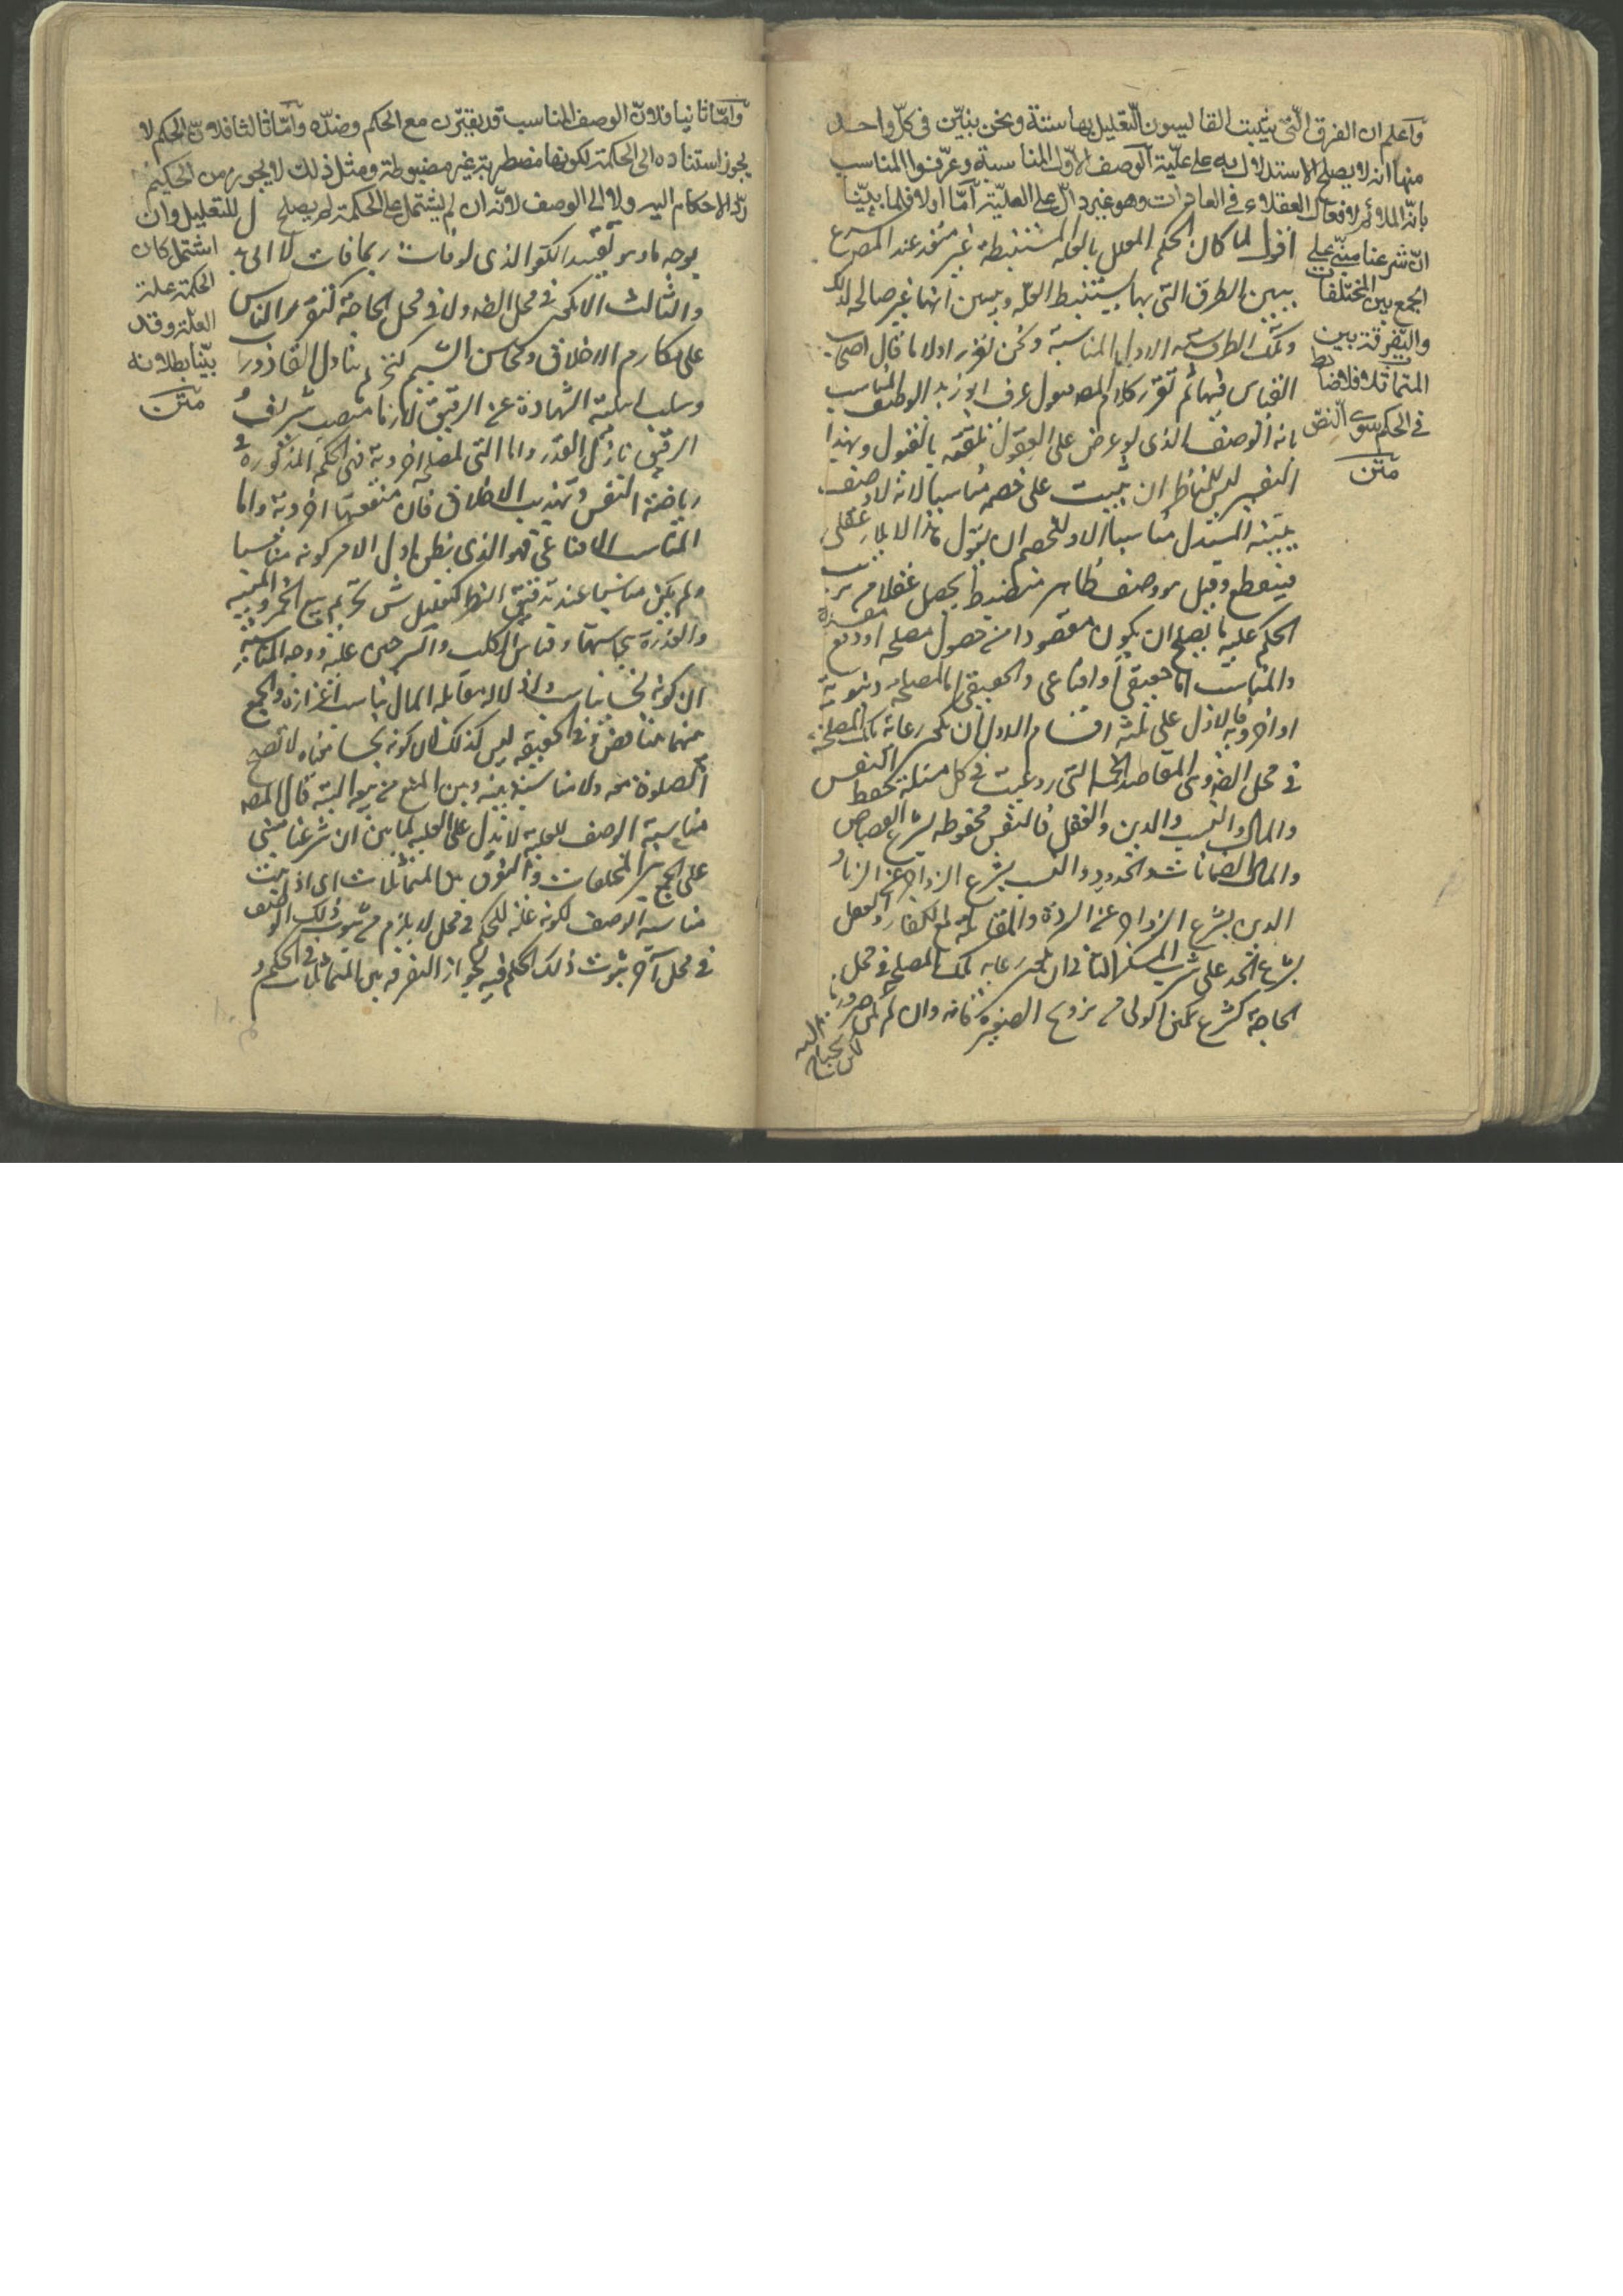 وآعلم ان الفرق التى يثبت القايسون التعليل بها ستة ونحن نبيّن فى كلّ واحد
منها انه لا يصلح الاستدلال به على عليّة الوصف الاوّل المناسبة وعرّفوا المناسب
بانّه الملائم لافعال العقلاء فى العادات وهو غير دالّ على العليّة آمّا اولا فلما بيّنّا
انّ شرعنا مبنىّ على
الجمع بين المختلفات
والتفرقة بين
المتماثلات فلا ضابط
فى الحكم سوى النصّ
متن
اقول لما كان الحكم المعلل بالعله المستنبطة غير متعد عند المصر شرع
يبين الطرق التى بها يستنبط العله ويبين انها غير صالحه لذلك
وتلك الطرق سته الاول المناسبة ونحن نقرر اولا ما قال اصحاب
القياس فيها ثم نقرر كلام المصر فنقول عرف ابو زيد الوصف المناسب
بانه الوصف الذى لو عرض على العقول تلقته بالقبول وبهذا
التفسير ليس للمناظر ان يثبت على خصمه مناسبا لانه لا وصف
يثبته المستدل مناسبا الا وللخصم ان يقول هذا لا يلايم عقلى
فينقطع وقيل هو وصف ظاهر منضبط يحصل عقلا من ترتيب
الحكم عليه ما يصلح ان يكون مقصودا من حصول مصلحة او دفع مفسدة
والمناسب اما حقيقى او اقناعى والحقيقى اما لمصلحة دنيوية
او اخروية فالاول على ثلثة اقسام الاول ان يكون رعاية تلك المصلحة
فى محل الضرورى المقاصد الخمسة التى روعيت فى كل ملة كحفظ النفس
والمال والنسب والدين والعقل فالنفس محفوظه بشرع القصاص
والمال بالضمانات والحدود والنسب بشرع الزواجر عن الزنا و
الدين بشرع الزواجر عن الردة والمقاتلة مع الكفار والعقل
بشرع الحد على شرب المسكر الثانى ان يكون رعاية تلك المصلحة فى محل
الحاجة كشرع تمكن الولى من تزويج الصغيرة فانه وان لم يكن ضروريا
وآمّا ثانيا فلانّ الوصف المناسب قد يقترن مع الحكم وضدّه وآمّا ثالثا فلانّ الحكم لا
يجوز استناده الى الحكمة لكونها مضطربة غير مضبوطة ومثل ذلك لا يجوز من الحكيم
ردّ الاحكام اليه ولا الى الوصف لانّه ان لم يشتمل على الحكمة لم يصلح للتعليل وان
اشتمل كان
الحكمة علة
العلّة وقد
بيّنّا بطلانه
متن
بوجه ما وهو تقييد الكفو الذى لو فات ربما فات لا الى بدل
والثالث الا يكون فى محل الضرورة ولا فى محل الحاجة كتقرير الناس
على مكارم الاخلاق ومحاسن الشيم كتحريم تناول القاذورات
وسلب اهلية الشهادة عن الرقيق لانها منصب شريف و
الرقيق نازل القدر واما التى لمصلحة اخروية فهى الحكم المذكورة فى
رياضة النفس وتهذيب الاخلاق فان منفعتها اخروية واما
المناسب الاقناعى فهو الذى يظن باول الامر كونه مناسبا
ولم يكن مناسبا عند تدقيق النظر كتعليل ش تحريم بيع الخمر والميتة
والعذرة بنجاستها وقياس الكلب والسرجين عليه ووجه المناسبة
ان كونه نجسا يناسب اذلاله ومقابلة المال يناسب اعزازه والجمع
بينهما تناقض وفى الحقيقة ليس كذلك لان كونه نجسا معناه لا تصح
الصلوة معه ولا مناسبة بينه وبين المنع من بيعه البتة قال المصر
مناسبة الوصف للعلية لا يدل على العلية لما بين ان شرعنا مبنى
على الجمع بين المختلفات والتفرق بين المتماثلات اى اذا ثبت
مناسبة الوصف لكونه علة للحكم فى محل لا يلزم من ثبوت ذلك الوصف
فى محل آخر ثبوت ذلك الحكم فيه لجواز التفرقة بين المتماثلات فى الحكم و